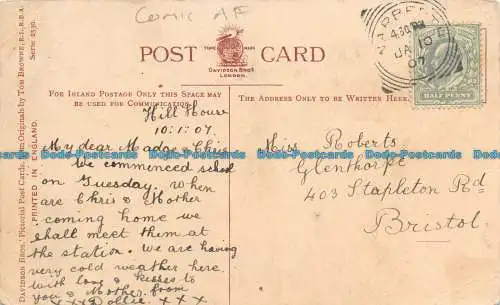 Comic AF
POST CARD
DAVIDSON BROS.
LONDON.
FOR INLAND POSTAGE ONLY THIS SPACE MAY
BE USED FOR COMMUNICATION.
THE ADDRESS ONLY TO BE WRITTEN HERE.
Hill House
10.1.07.
My dear Madge & Chris
We commenced school
on Tuesday. When
are Chris & Mother
coming home we
shall meet them at
the station. We are having
very cold weather here
with love & kisses to
you & Mother from
x x x Dollie x x x
Miss Roberts
Glenthorpe
403 Stapleton Rd
Bristol.
4.30 PM
JA 10
07
HALF PENNY
DAVIDSON BROS.' PICTORIAL POST CARDS. From Originals by TOM BROWNE, R.I., R.B.A. SERIE 2530.
PRINTED IN ENGLAND.
Dodo-Postcards Dodo-Postcards Dodo-Postcards Dodo-Postcards